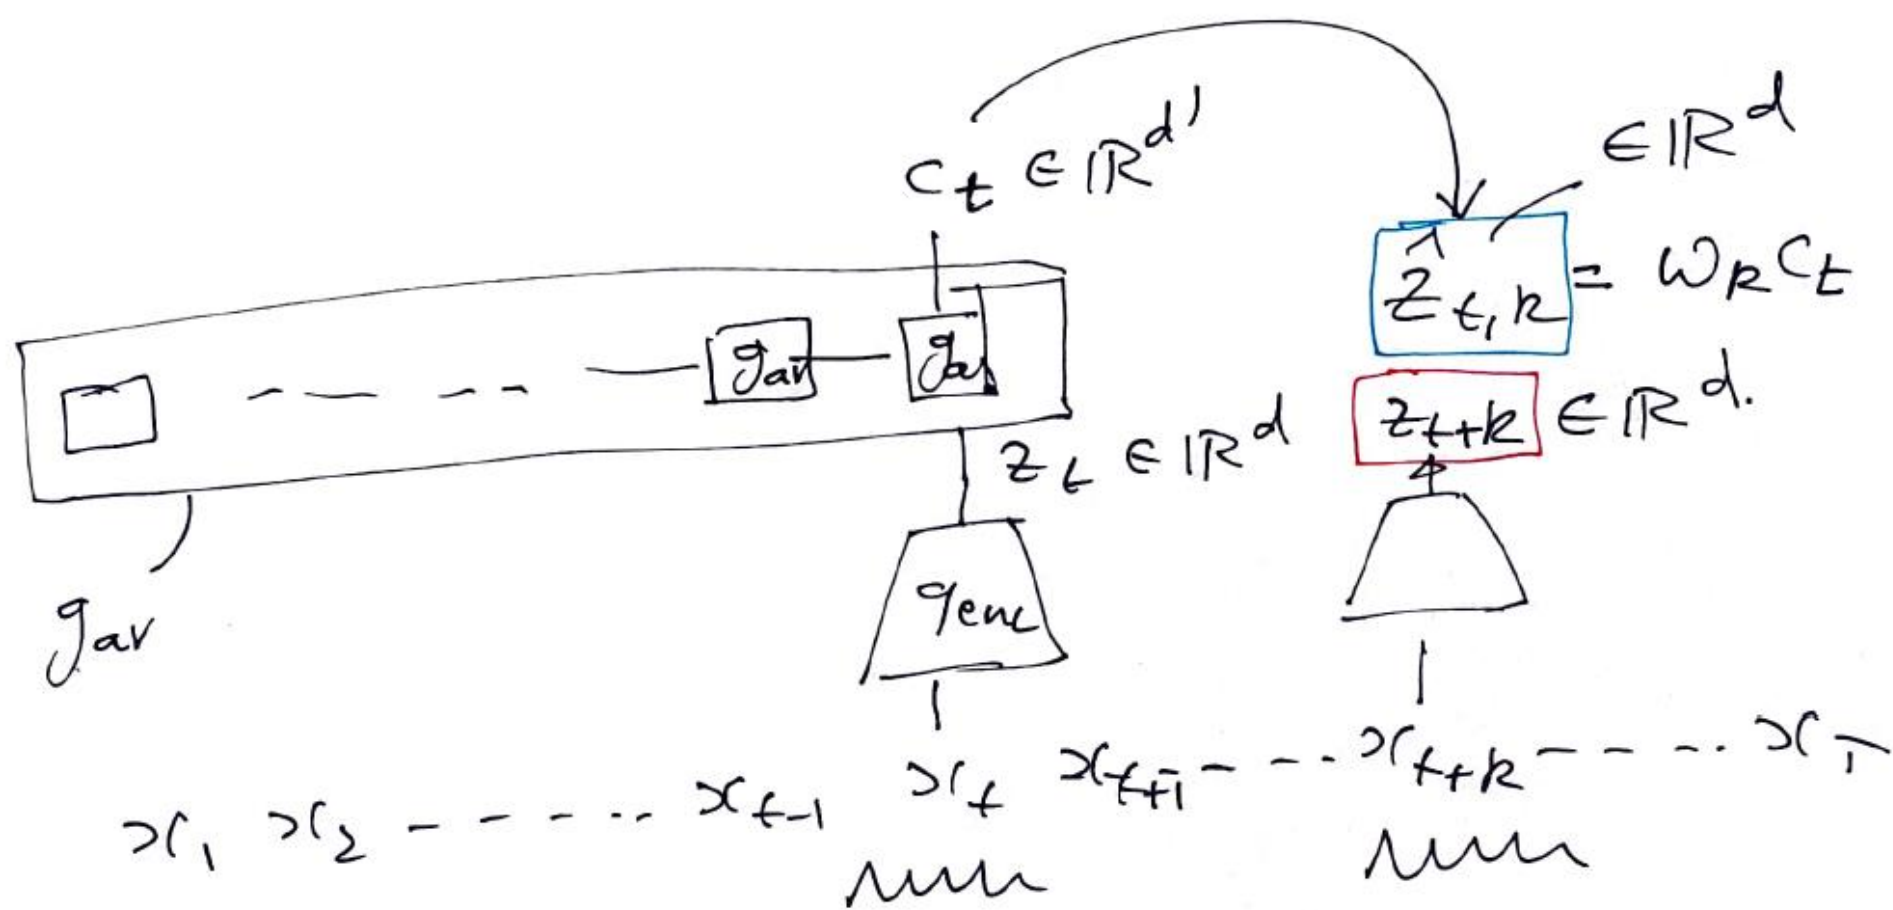 c_t ∈ ℝ^{d'}
∈ ℝ^d
ẑ_{t,k} = W_k c_t
g_{ar} g_{ar}
z_t ∈ ℝ^d
z_{t+k} ∈ ℝ^d.
g_{enc}
g_{ar}
x_1 x_2 - - - - - .. x_{t-1} x_t x_{t+1} - - - .. x_{t+k} - - - - .. x_T